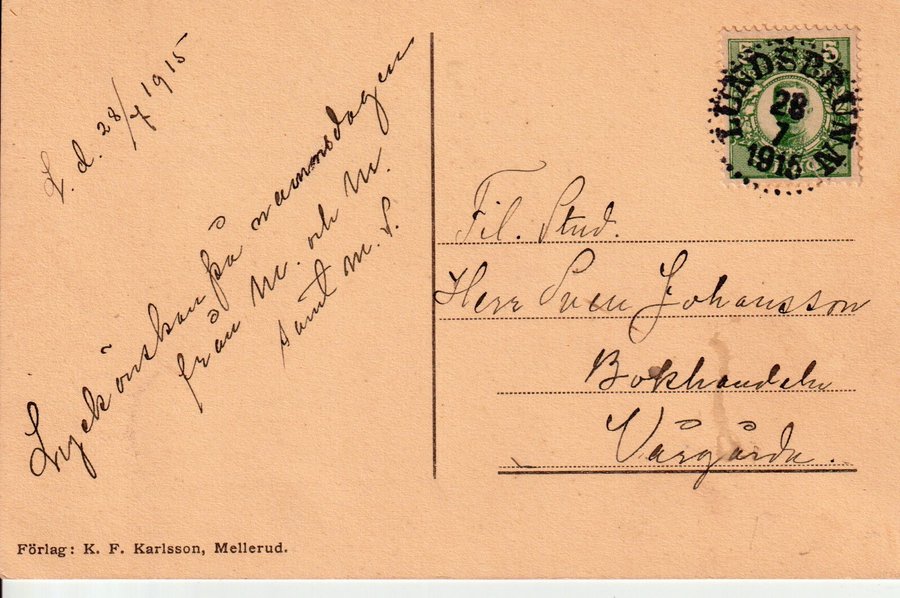 L. d. 28/7 1915
Lyckönskan på namnsdagen
från M. och M.
samt M. S.
5
LUNDSBRUNN
28
7
1915
Fil. Stud.
Herr Sven Johansson
Bokhandeln
Vårgårda.
Förlag: K. F. Karlsson, Mellerud.